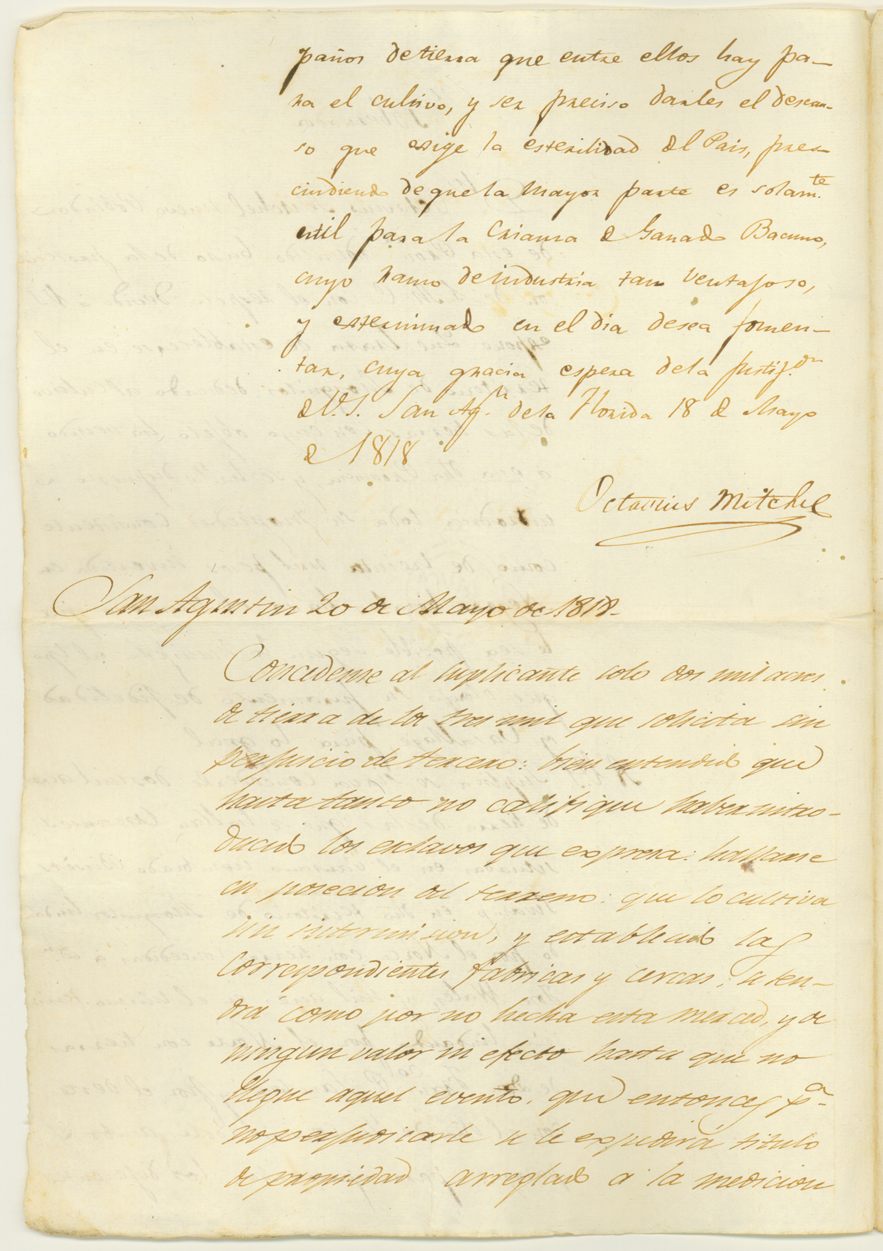 paños de tierra que entre ellos hay pa-
ra el cultivo, y ser preciso darles el descan-
so que exige la esterilidad del Pais, pres-
cindiendo de que la mayor parte es solam.te
util para la crianza de Ganado Bacuno,
cuyo ramo de industria tan ventajoso,
y exterminado en el dia desea fomen-
tar, cuya gracia espera de la Justif.on
de V.S. San Ag.n de la Florida 18 de Mayo
de 1818
Octavius Mitchel
San Agustin 20 de Mayo de 1818-
Concedense al suplicante solo dos mil acres
de tierra de los tres mil que solicita sin
perjuicio de tercero: bien entendido que
hasta tanto no califique haber intro-
ducido los esclavos que expresa: hallarse
en posecion del terreno: que lo cultiva
sin intermision, y establecido las
correspondientes fabricas y cercas, se ten-
drá como por no hecha esta merced, y de
ningun valor ni efecto hasta que no
llegue aquel evento, que entonces p.a
no perjudicarle se le expedirá titulo
de propriedad arreglado á la medicion